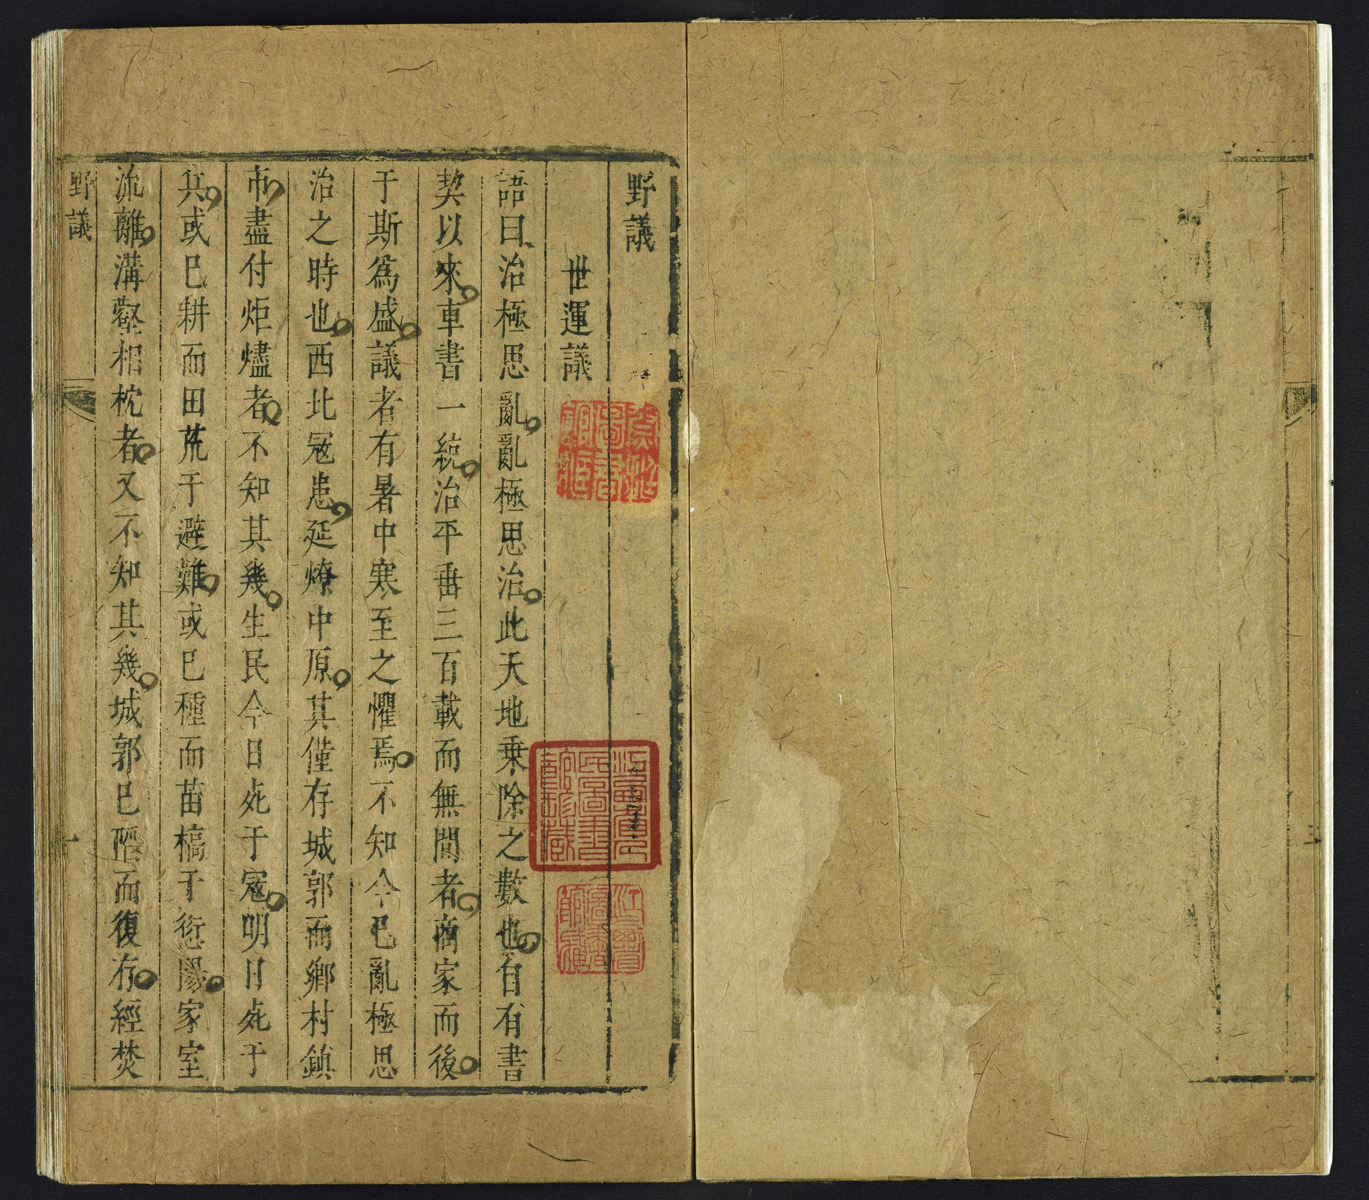 野議
世運議
語曰治極思亂亂極思治此天地乗除之數也自有書
契以來車書一統治平垂三百載而無間者商家而後
于斯爲盛議者有暑中寒至之懼焉不知今已亂極思
治之時也西北宼患延燎中原其僅存城郭而鄉村鎮
市盡付炬燼者不知其幾生民今日死于宼明日死于
兵或已耕而田荒于避難或已種而苗槁于愆陽家室
流離溝壑相枕者又不知其幾城郭已陷而復存經焚
野議
一